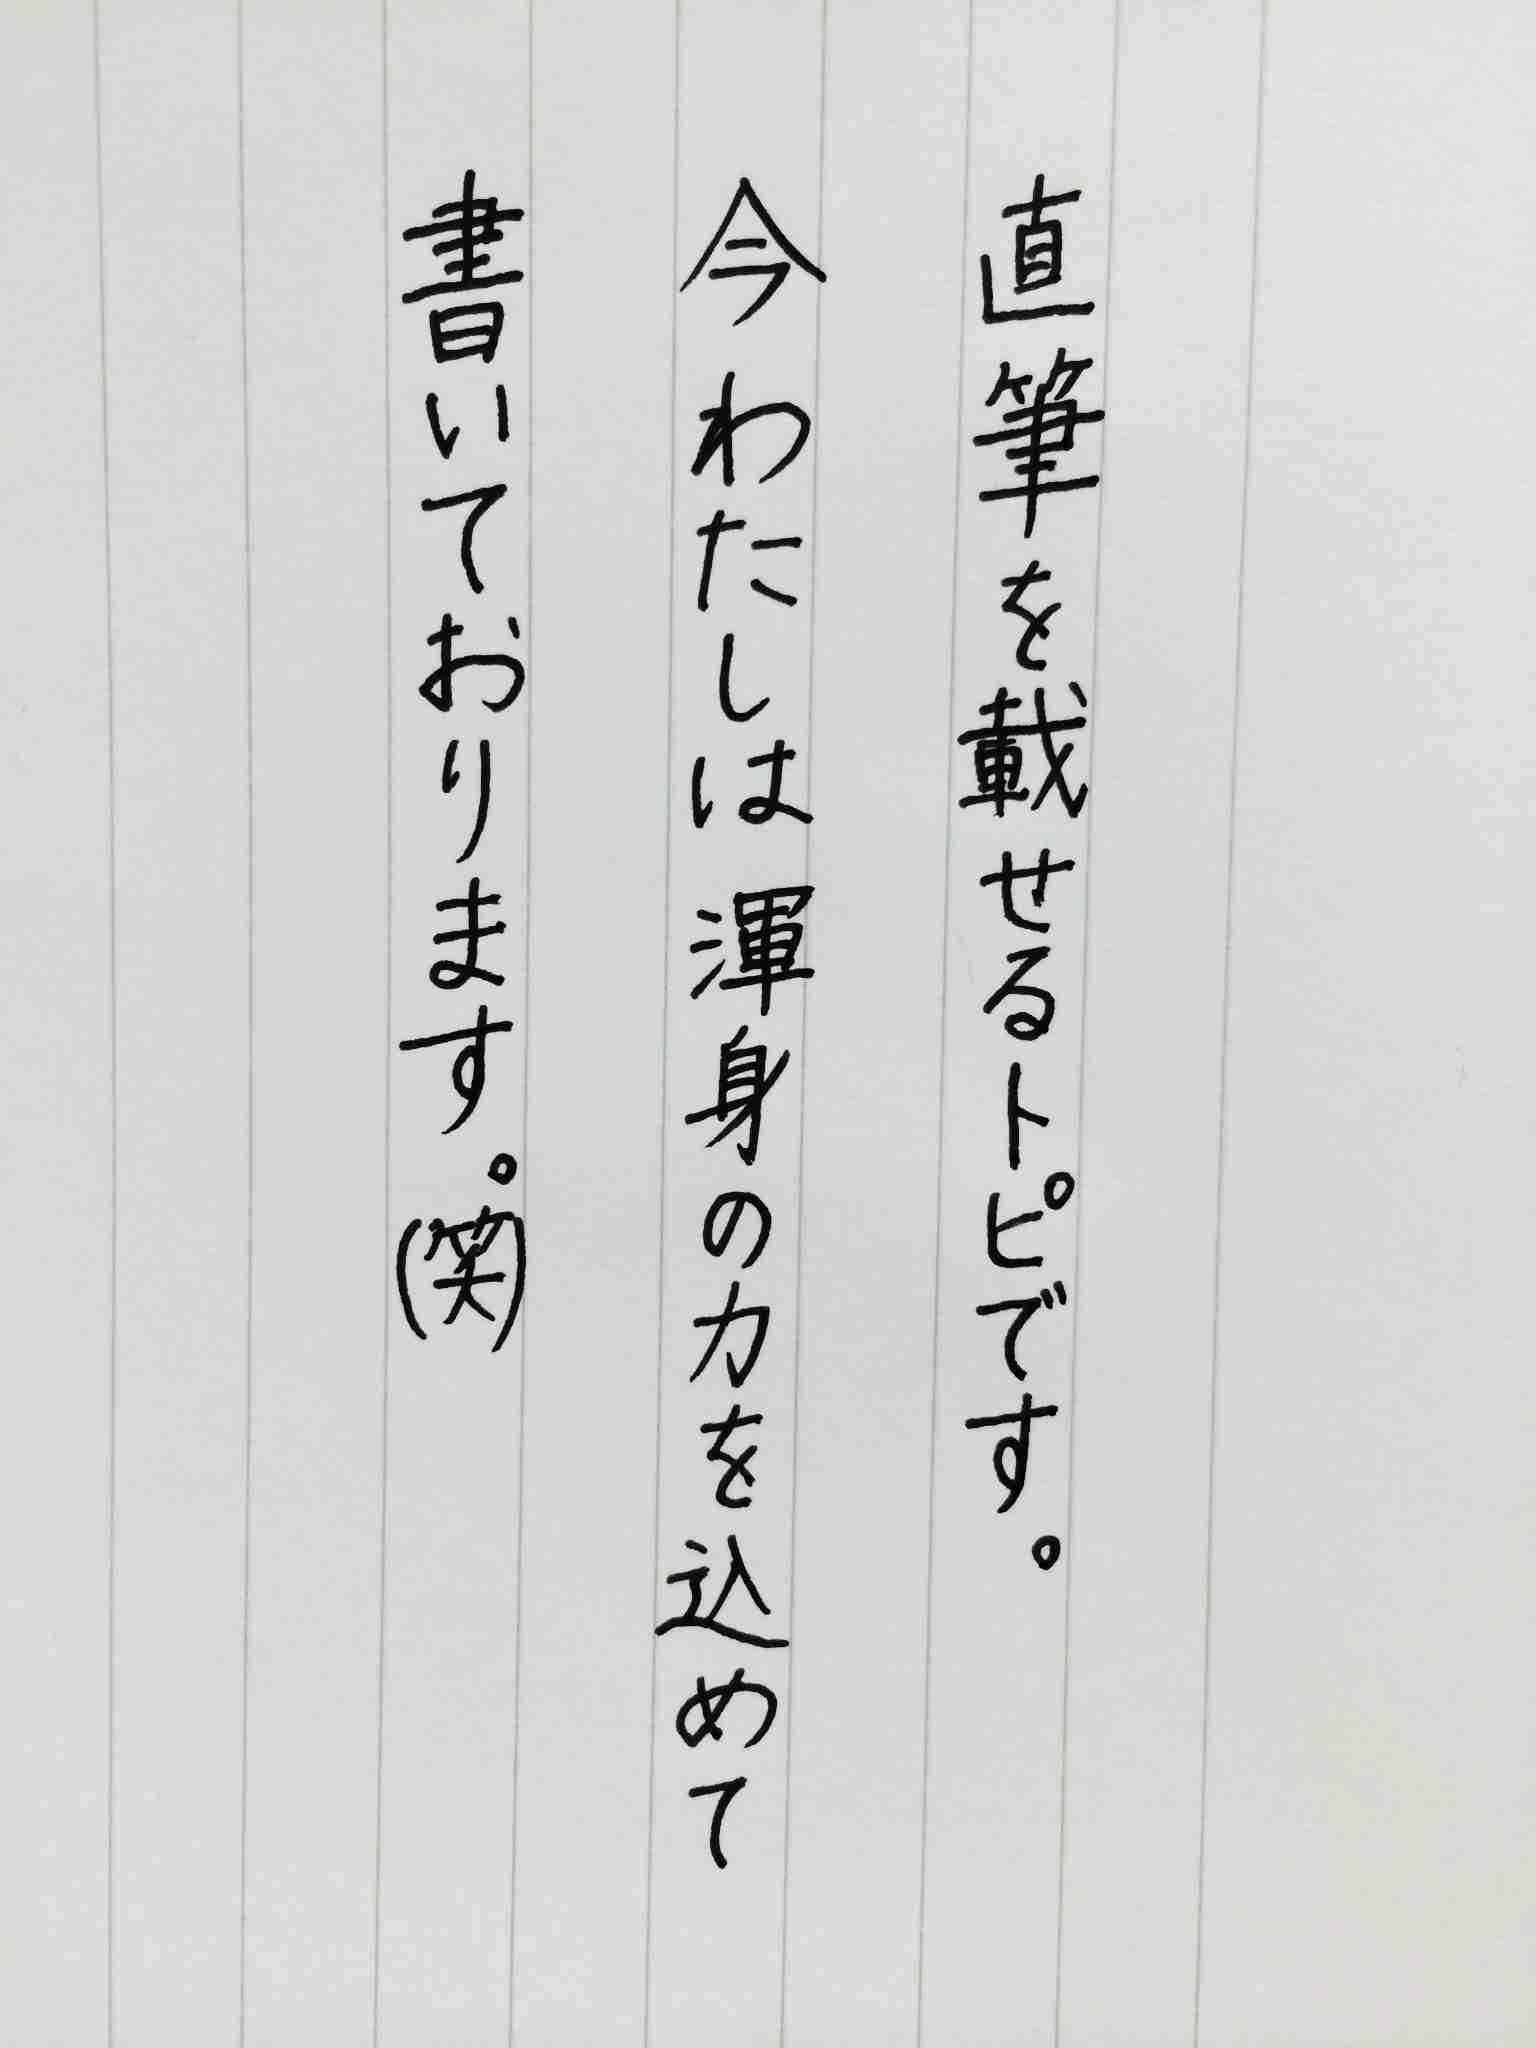 直筆を載せるトピです。
今わたしは渾身の力を込めて
書いております。(笑)